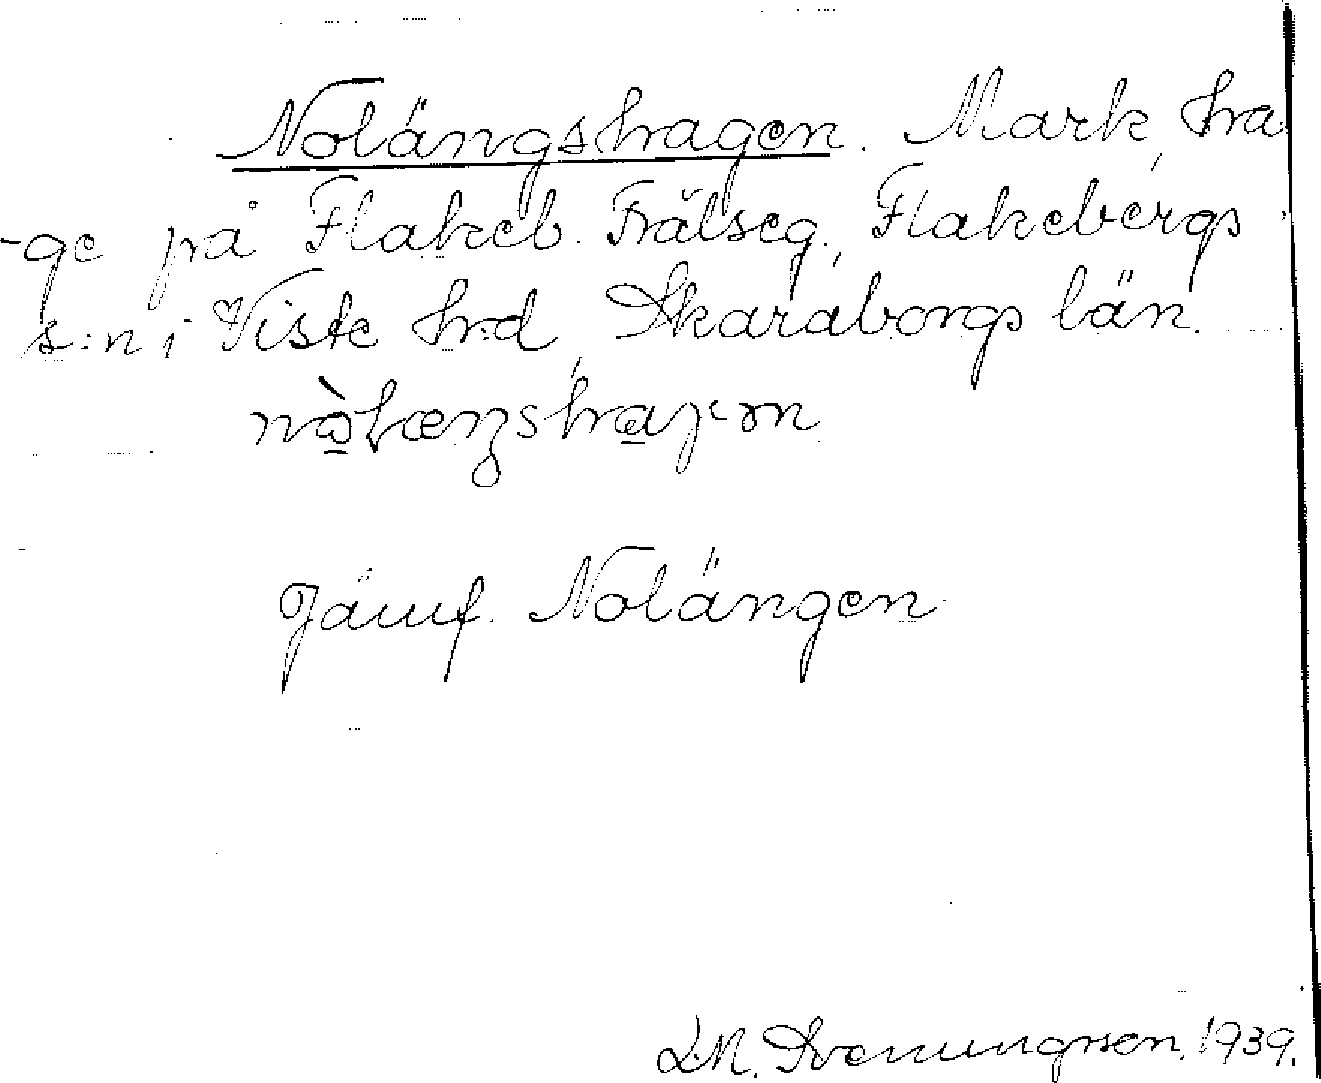 Nolängshagen. Mark, ha
-ge på Flakeb. Frälseg., Flakebergs
s:n i Viste h:d, Skaraborgs län.
Jämf. Nolängen
L.M. Svenungsson. 1939.